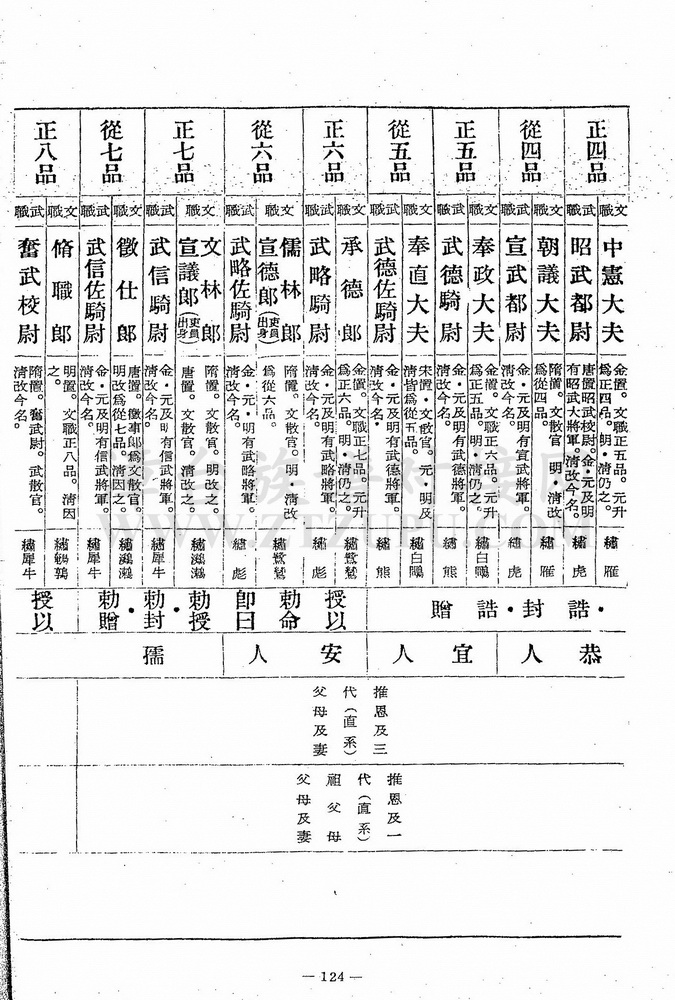 正四品
從四品
正五品
從五品
正六品
從六品
正七品
從七品
正八品
文職
武職
文職
武職
文職
武職
文職
武職
文職
武職
文職
武職
文職
武職
文職
武職
文職
武職
中憲大夫
昭武都尉
朝議大夫
宣武都尉
奉政大夫
武德騎尉
奉直大夫
武德佐騎尉
承德郎
武略騎尉
儒林郎
宣德郎(吏員出身)
武略佐騎尉
文林郎
宣議郎(吏員出身)
武信騎尉
徵仕郎
武信佐騎尉
脩職郎
奮武校尉
金置。文職正五品。元升
爲正四品。明·清仍之。
唐置昭武校尉。金·元及明
有昭武大將軍。清改今名。
隋置。文散官 明。清改
爲從四品。
金·元及明有宣武將軍。
清改今名。
金置。文職正六品。元升
爲正五品。明·清仍之。
金·元及明有武德將軍。
清改今名。
宋置·文散官。元·明及
清皆爲從五品。
金·元及明有武德將軍。
清改今名·
金置。文職正七品。元升
爲正六品。明·清仍之。
金·元及明有武略將軍。
清改今名。
隋置。文散官。明·清改
爲從六品。
金·元·明有武略將軍。
清改今名。
隋置。文散官。明改之。
唐置。文散官。明·清因之。
金·元及明有信武將軍。
清改今名。
唐置。徵事郎爲文散官。
明改爲從七品 清因之。
金·元及明有信武將軍。
清改今名。
明置。文職正八品。清因
之。
隋置。奮武尉。武散官。
清改今名。
繡雁
繡虎
繡雁
繡虎
繡白鷴
繡熊
繡白鷴
繡熊
繡鷺鷥
繡彪
繡鷺鷥
繡彪
繡鸂鶒
繡犀牛
繡鸂鶒
繡犀牛
繡鵪鶉
繡犀牛
·誥封·誥贈
授以
勅命
即曰
勅授
·勅封·
勅贈
授以
恭人
宜人
安人
孺
推恩及三
代(直系)
父母及妻
推恩及一
代(直系)
祖父母
父母及妻
— 124 —